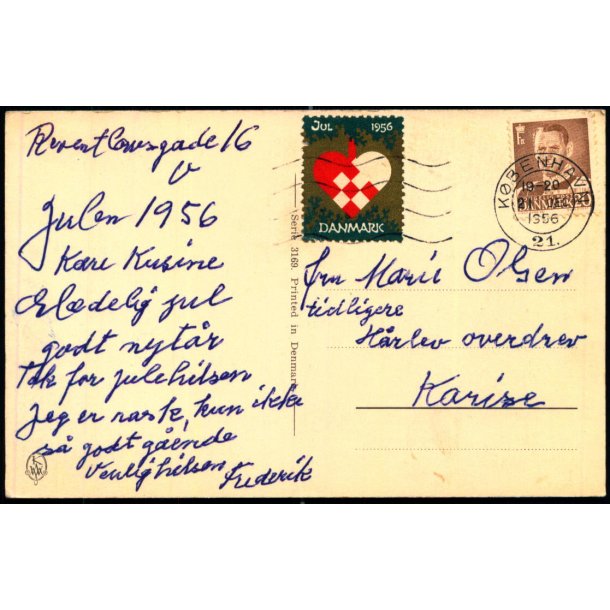 Reventlowsgade 16
V
Julen 1956
Kære Kusine
Glædelig jul
godt nytår
tak for julehilsen
Jeg er rask, kun ikke
så godt gående
Venlig hilsen Frederik
JUL 1956
DANMARK
KØBENHAVN
19-20
21. DEC.
1956
21.
Serie 3169. Printed in Denmark
fru Marie Olsen
tidligere
Hårlev overdrev
Karise